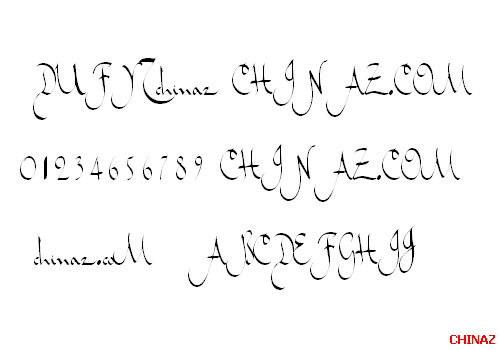 chinaz CHINAZ.COM
0123456789 CHINAZ.COM
chinaz.coM ABCDEFGHIJ
CHINAZ